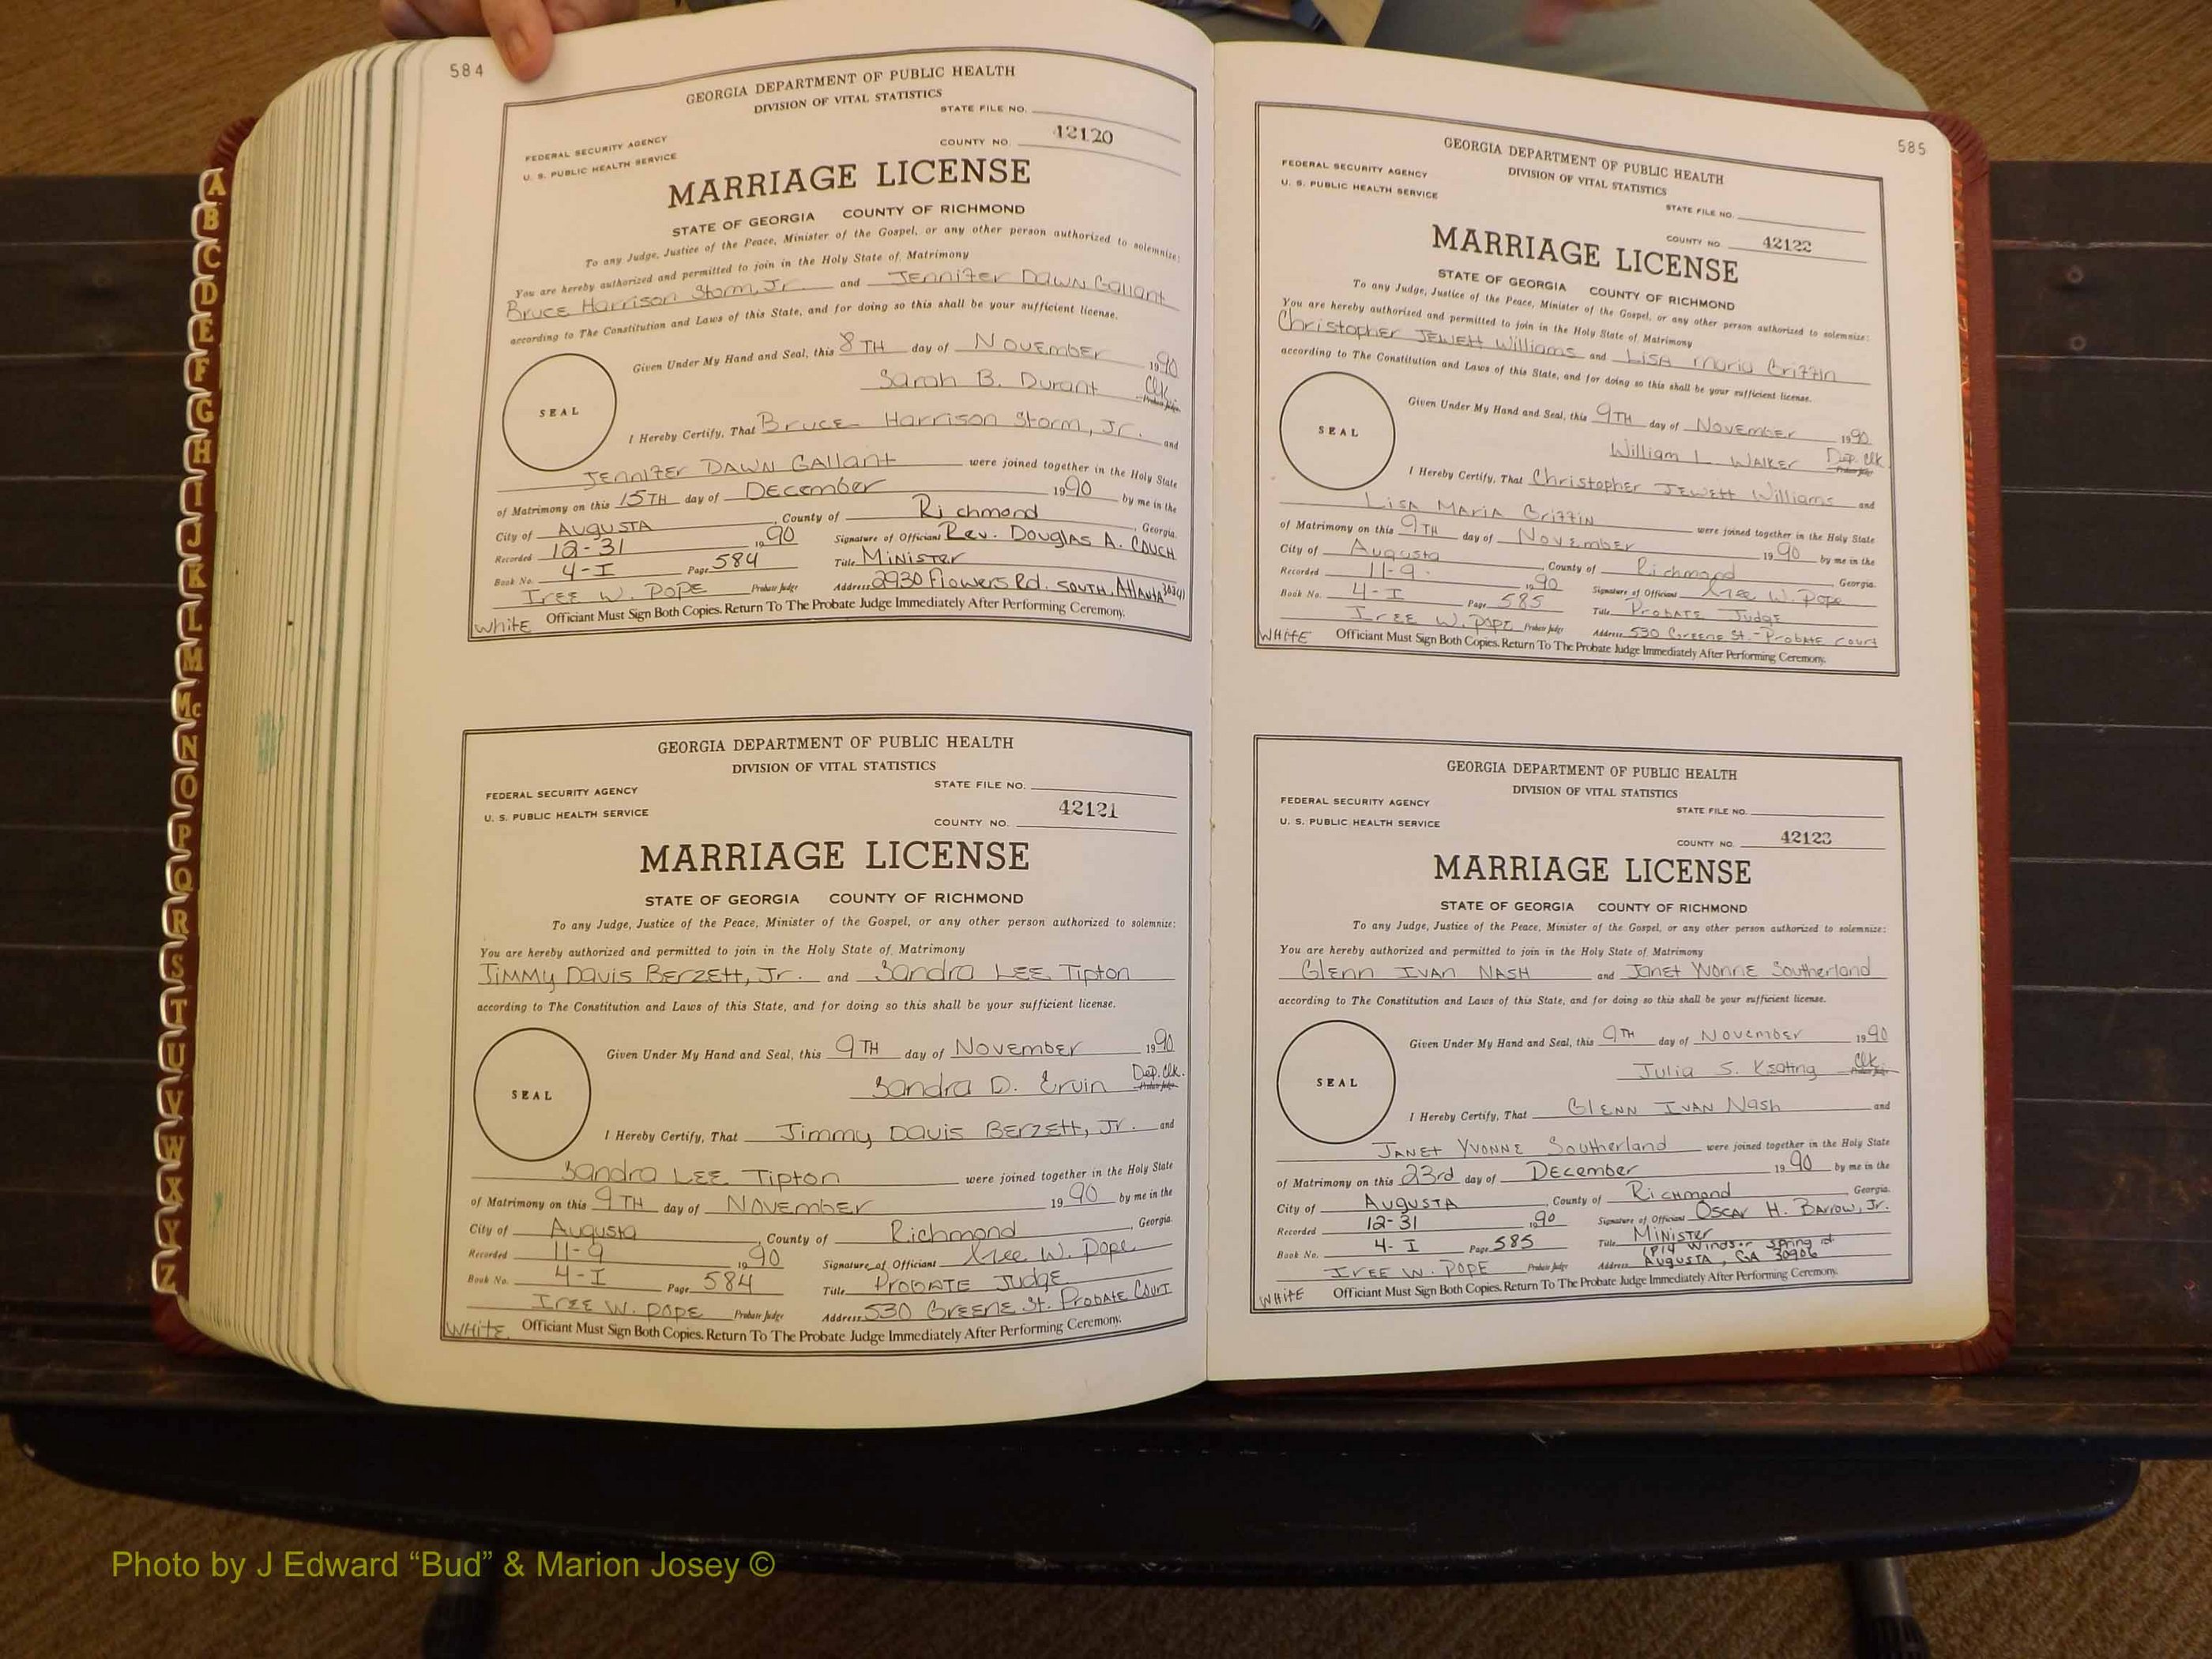 584
GEORGIA DEPARTMENT OF PUBLIC HEALTH
DIVISION OF VITAL STATISTICS
STATE FILE NO.
FEDERAL SECURITY AGENCY
U. S. PUBLIC HEALTH SERVICE
COUNTY NO. 42120
MARRIAGE LICENSE
STATE OF GEORGIA COUNTY OF RICHMOND
To any Judge, Justice of the Peace, Minister of the Gospel, or any other person authorized to solemnize:
You are hereby authorized and permitted to join in the Holy State of Matrimony
Bruce Harrison Storm, Jr. and Jennifer Dawn Gallant
according to The Constitution and Laws of this State, and for doing so this shall be your sufficient license.
SEAL
Given Under My Hand and Seal, this 8TH day of November 1990
Sarah B. Durant Clk. Probate Judge
I Hereby Certify, That Bruce Harrison Storm, Jr. and
Jennifer Dawn Gallant were joined together in the Holy State
of Matrimony on this 15TH day of December 1990 by me in the
City of Augusta, County of Richmond, Georgia.
Recorded 12-31 1990 Signature of Officiant Rev. Douglas A. Couch
Book No. 4-I Page 584 Title Minister
Iree W. Pope Probate Judge Address 2930 Flowers Rd. South, Atlanta 30341
White Officiant Must Sign Both Copies. Return To The Probate Judge Immediately After Performing Ceremony.
GEORGIA DEPARTMENT OF PUBLIC HEALTH
DIVISION OF VITAL STATISTICS
STATE FILE NO.
FEDERAL SECURITY AGENCY
U. S. PUBLIC HEALTH SERVICE
COUNTY NO. 42121
MARRIAGE LICENSE
STATE OF GEORGIA COUNTY OF RICHMOND
To any Judge, Justice of the Peace, Minister of the Gospel, or any other person authorized to solemnize:
You are hereby authorized and permitted to join in the Holy State of Matrimony
Jimmy Davis Berzett, Jr. and Sandra Lee Tipton
according to The Constitution and Laws of this State, and for doing so this shall be your sufficient license.
SEAL
Given Under My Hand and Seal, this 9TH day of November 1990
Sandra D. Ervin Dep. Clk. Probate Judge
I Hereby Certify, That Jimmy Davis Berzett, Jr. and
Sandra Lee Tipton were joined together in the Holy State
of Matrimony on this 9TH day of November 1990 by me in the
City of Augusta, County of Richmond, Georgia.
Recorded 11-9 1990 Signature of Officiant Iree W. Pope
Book No. 4-I Page 584 Title Probate Judge
Iree W. Pope Probate Judge Address 530 Greene St. Probate Court
White Officiant Must Sign Both Copies. Return To The Probate Judge Immediately After Performing Ceremony.
585
GEORGIA DEPARTMENT OF PUBLIC HEALTH
DIVISION OF VITAL STATISTICS
FEDERAL SECURITY AGENCY
U. S. PUBLIC HEALTH SERVICE
STATE FILE NO.
COUNTY NO. 42122
MARRIAGE LICENSE
STATE OF GEORGIA COUNTY OF RICHMOND
To any Judge, Justice of the Peace, Minister of the Gospel, or any other person authorized to solemnize:
You are hereby authorized and permitted to join in the Holy State of Matrimony
Christopher Jewett Williams and Lisa Maria Griffin
according to The Constitution and Laws of this State, and for doing so this shall be your sufficient license.
SEAL
Given Under My Hand and Seal, this 9TH day of November 1990
William L. Walker Dep. Clk. Probate Judge
I Hereby Certify, That Christopher Jewett Williams and
Lisa Maria Griffin were joined together in the Holy State
of Matrimony on this 9TH day of November 1990 by me in the
City of Augusta, County of Richmond, Georgia.
Recorded 11-9- 1990 Signature of Officiant Iree W. Pope
Book No. 4-I Page 585 Title Probate Judge
Iree W. Pope Probate Judge Address 530 Greene St. - Probate Court
White Officiant Must Sign Both Copies. Return To The Probate Judge Immediately After Performing Ceremony.
GEORGIA DEPARTMENT OF PUBLIC HEALTH
DIVISION OF VITAL STATISTICS
FEDERAL SECURITY AGENCY
U. S. PUBLIC HEALTH SERVICE
STATE FILE NO.
COUNTY NO. 42123
MARRIAGE LICENSE
STATE OF GEORGIA COUNTY OF RICHMOND
To any Judge, Justice of the Peace, Minister of the Gospel, or any other person authorized to solemnize:
You are hereby authorized and permitted to join in the Holy State of Matrimony
Glenn Ivan Nash and Janet Yvonne Southerland
according to The Constitution and Laws of this State, and for doing so this shall be your sufficient license.
SEAL
Given Under My Hand and Seal, this 9TH day of November 1990
Julia S. Keating Clk. Probate Judge
I Hereby Certify, That Glenn Ivan Nash and
Janet Yvonne Southerland were joined together in the Holy State
of Matrimony on this 23rd day of December 1990 by me in the
City of Augusta, County of Richmond, Georgia.
Recorded 12-31 1990 Signature of Officiant Oscar H. Barrow, Jr.
Book No. 4-I Page 585 Title Minister
1914 Windsor Spring rd
Iree W. Pope Probate Judge Address Augusta, GA 30906
White Officiant Must Sign Both Copies. Return To The Probate Judge Immediately After Performing Ceremony.
A
B
C
D
E
F
G
H
I
J
K
L
M
Mc
N
O
P
Q
R
S
T
U
V
W
X
Y
Z
Photo by J Edward “Bud” & Marion Josey ©